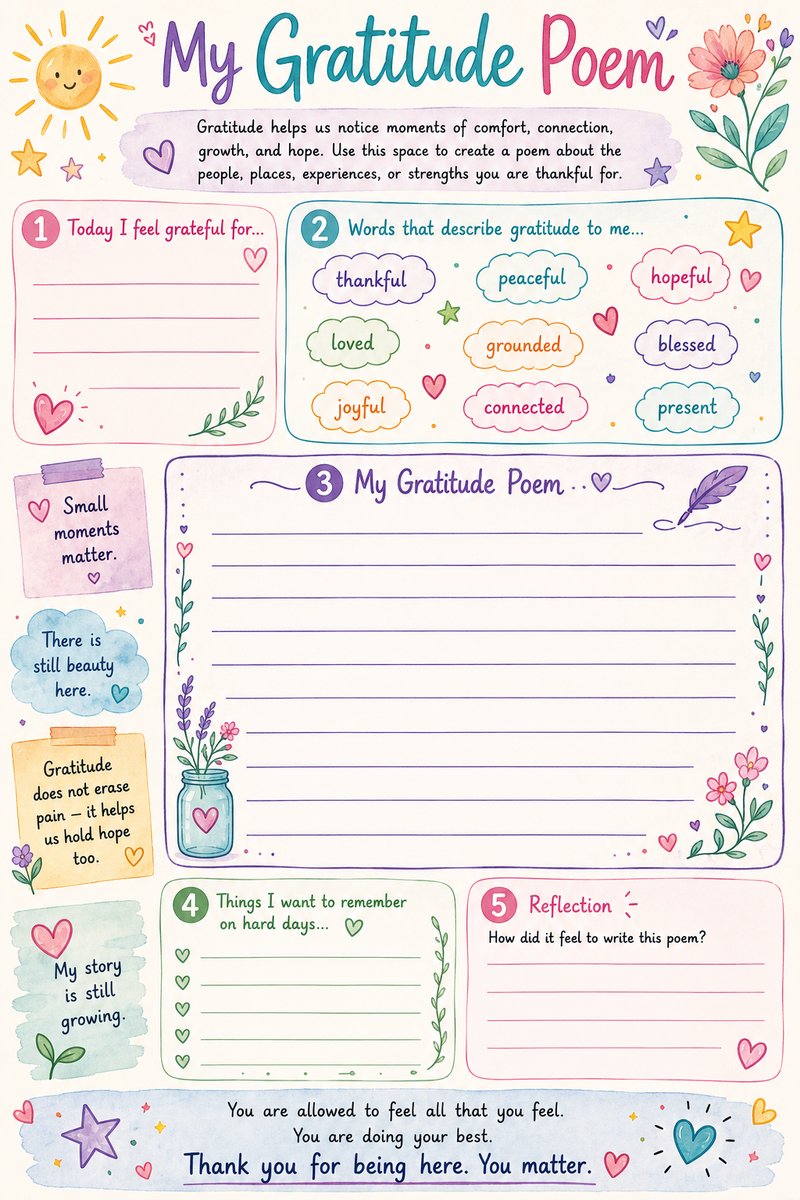 My Gratitude Poem
Gratitude helps us notice moments of comfort, connection,
growth, and hope. Use this space to create a poem about the
people, places, experiences, or strengths you are thankful for.
1 Today I feel grateful for...
2 Words that describe gratitude to me...
thankful
peaceful
hopeful
loved
grounded
blessed
joyful
connected
present
Small
moments
matter.
There is
still beauty
here.
Gratitude
does not erase
pain — it helps
us hold hope
too.
My story
is still
growing.
3 My Gratitude Poem
4 Things I want to remember
on hard days...
5 Reflection
How did it feel to write this poem?
You are allowed to feel all that you feel.
You are doing your best.
Thank you for being here. You matter.